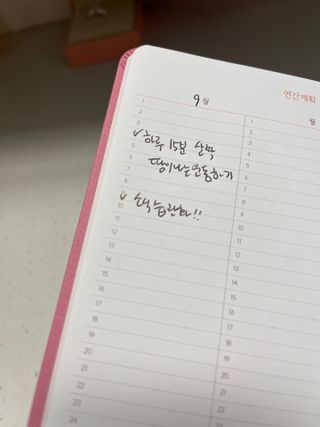 연간계획
9월
월
✓ 하루 15분 살짝
땀나는 운동하기
✓ 소식 습관화!!
1
2
3
5
6
7
8
9
10
11
12
13
14
15
16
17
18
19
20
21
22
23
24
1
2
3
4
5
6
7
8
9
10
11
12
13
14
15
16
17
18
19
20
21
22
23